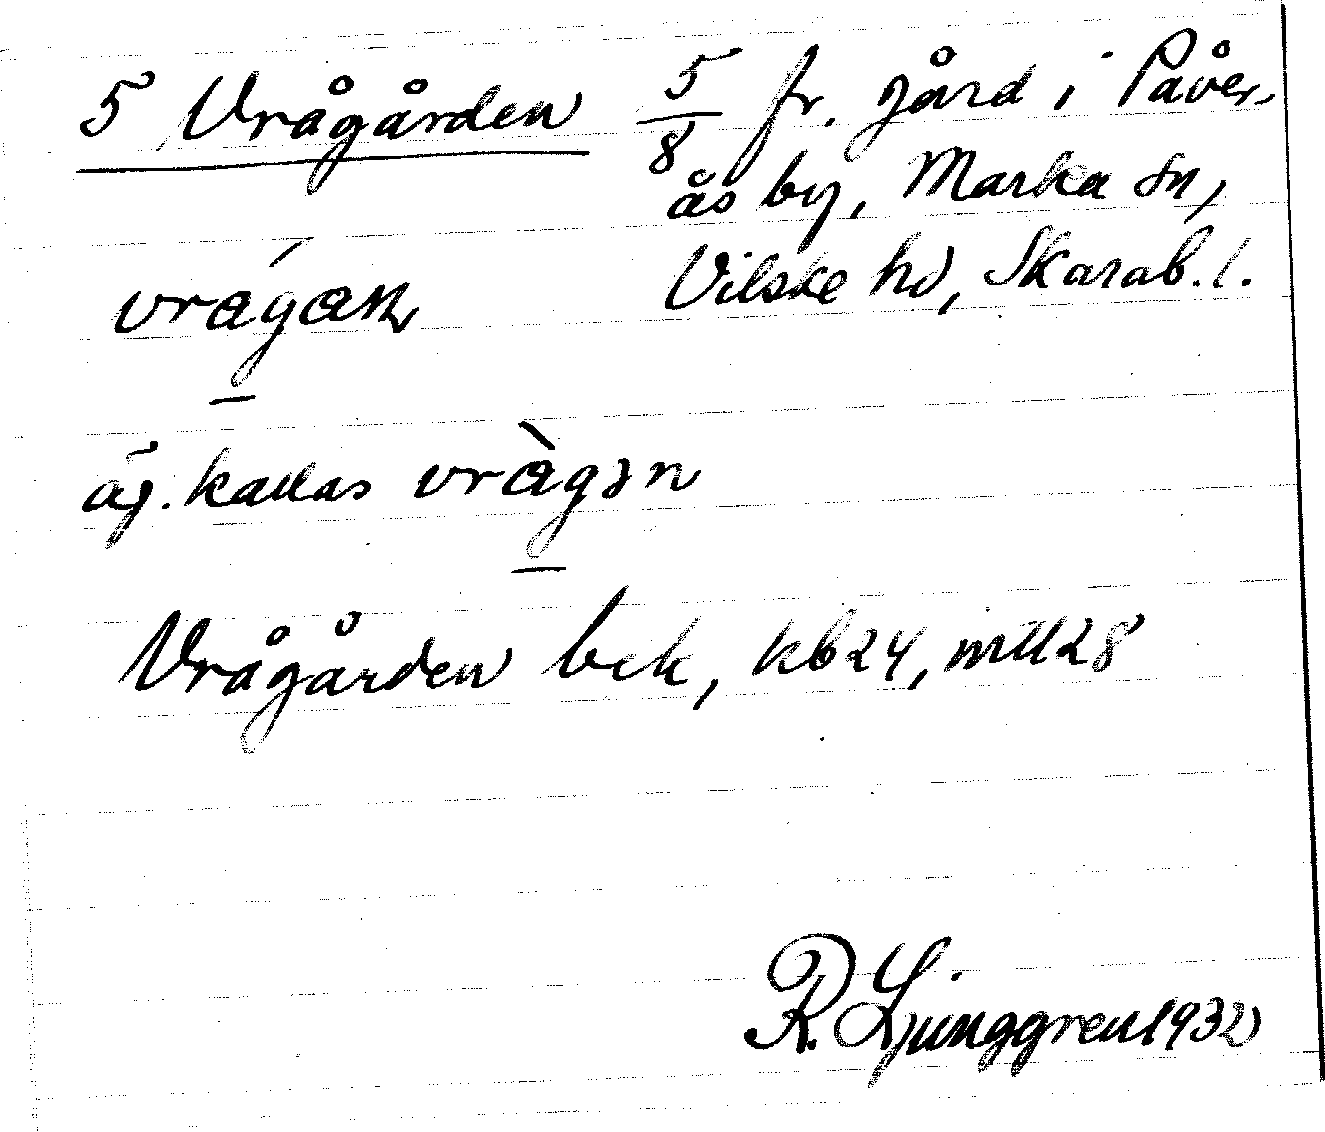 5 Vrågården 5/8 fr. gård i Påver-
ås by, Marka sn,
Vilske hd, Skarab. l.
vragan
äg. kallas vràgən
Vrågården bek, kb24, mtl28
R. Ljunggren 1932